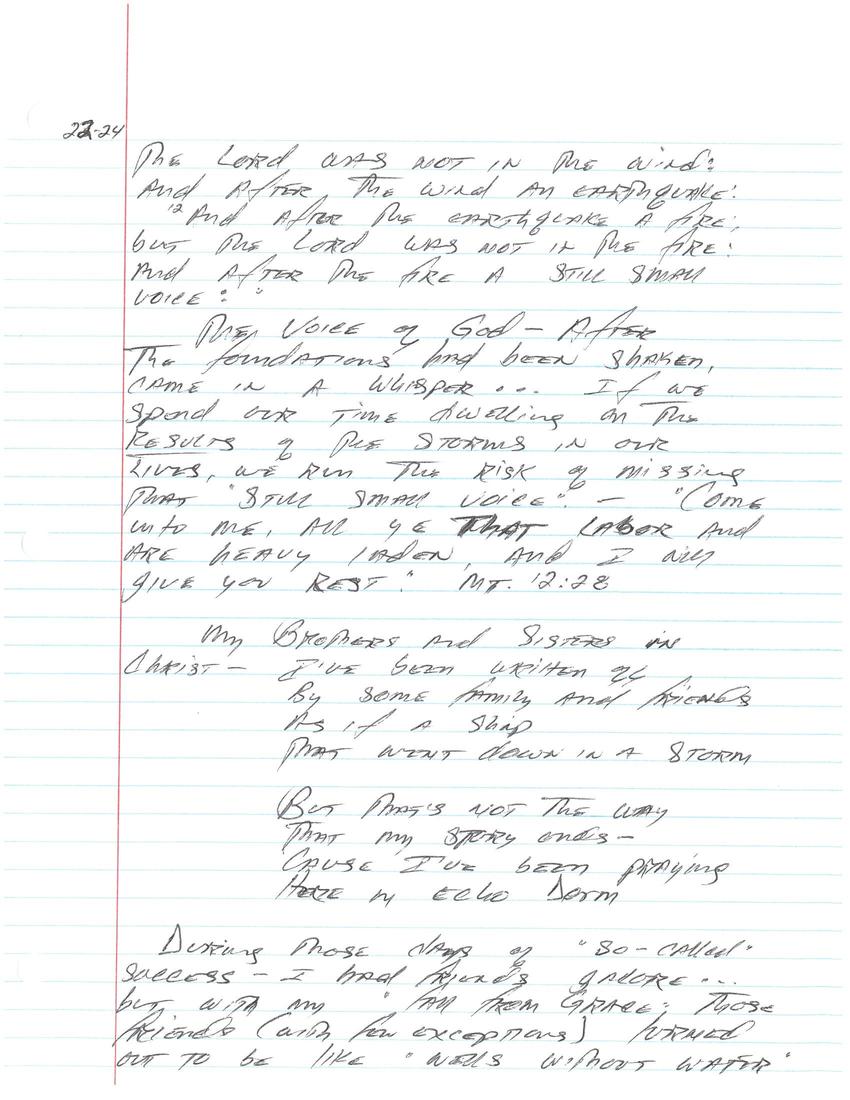 22-24
The Lord was not in the wind:
And after the wind an earthquake:
12 And after the earthquake a fire;
but the Lord was not in the fire:
And after the fire a still small
voice: "
The Voice of God - After
The foundations had been shaken,
came in a whisper... If we
spend our time dwelling on the
Results of the storms in our
lives, we run the risk of missing
that "still small voice". - "Come
unto me, all ye that labor and
are heavy laden, and I will
give you rest." Mt. 12:28
My Brothers and Sisters in
Christ - I've been written off
By some family and friends
As if a ship
That went down in a storm
But that's not the way
That my story ends -
'Cause I've been praying
Here in Echo Dorm
During those days of "so-called"
success - I had friends galore...
but with my "fall from Grace: those
friends (with few exceptions) turned
out to be like "wells without water"